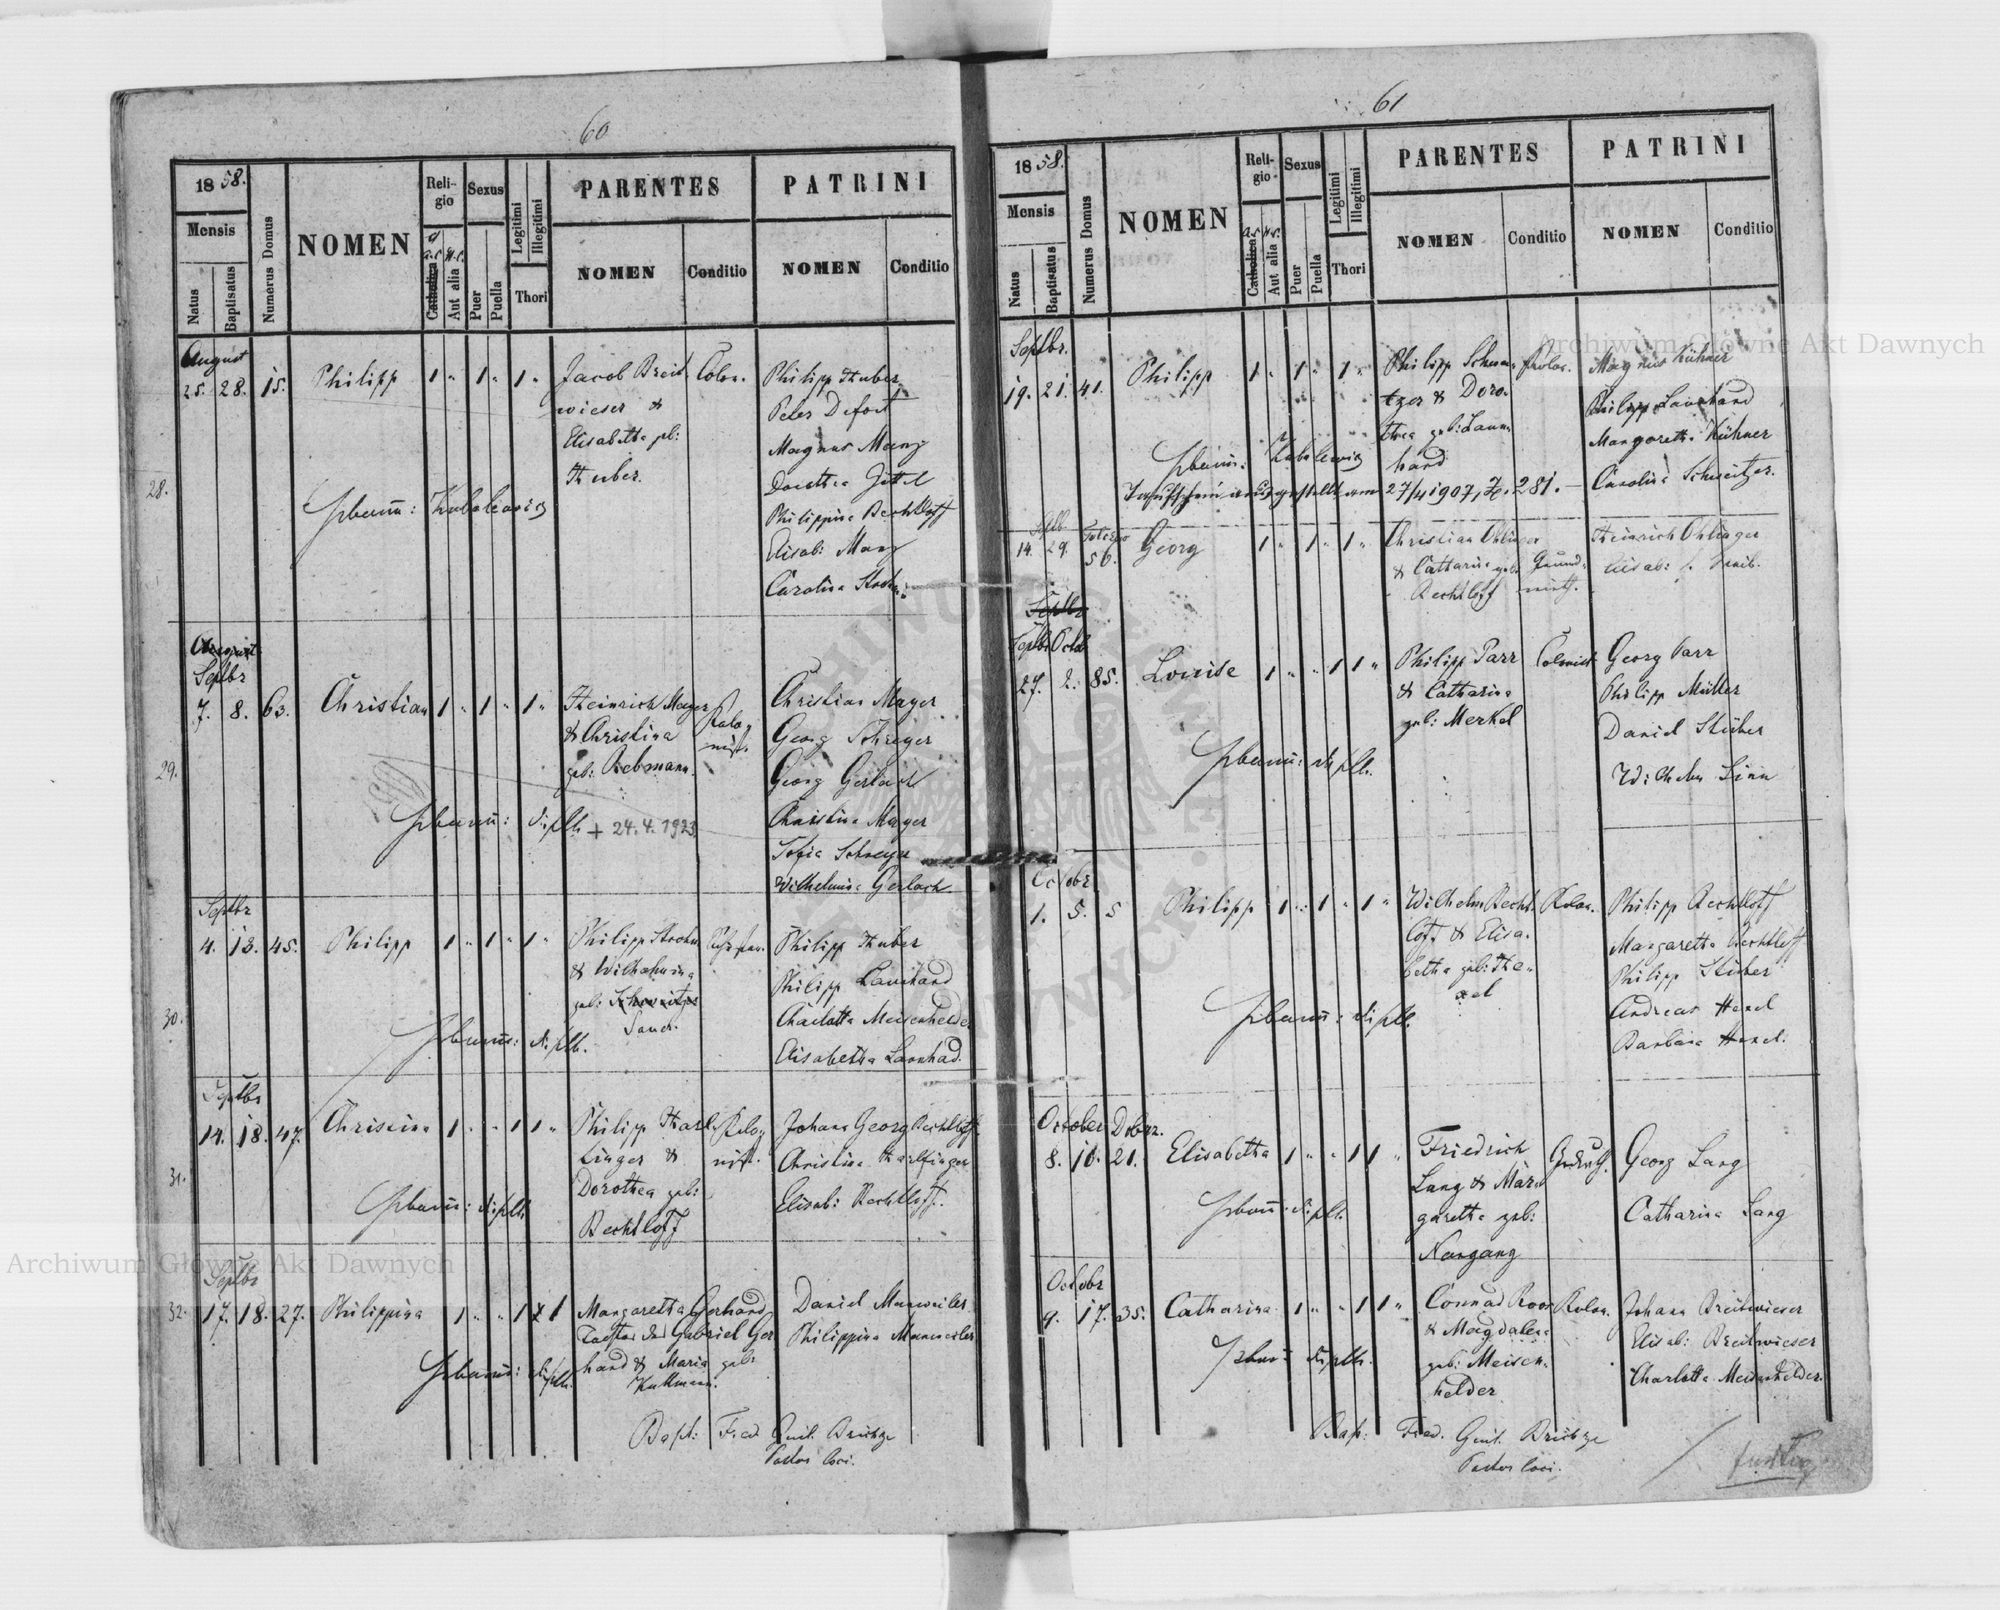 60
1858.
Mensis
Natus
Baptisatus
Numerus Domus
NOMEN
Religio
Catholica
Aut alia
Sexus
Puer
Puella
Legitimi
Illegitimi
Thori
PARENTES
NOMEN
Conditio
PATRINI
NOMEN
Conditio
28.
August
25. 28. 15. Philipp 1 " 1 " 1 "
Jacob Breit-
wieser &
Elisabetha geb:
Huber.
Colon.
Philipp Huber
Peter Defort
Magnus Manz
Dorothea Jittel
Philippina Bechtloff
Elisab: Manz
Carolina
29.
August
Septbr
7. 8. 63. Christian 1 " 1 " 1 "
Heinrich Mayer
& Christina
geb: Rebmann.
+ 24.4.1923
Christian Mayer
Georg Schreyer
Georg Gerlach
Christina Mayer
Sofia Schreyer
Wilhelmina Gerlach
30.
Septbr
4. 13. 45. Philipp 1 " 1 " 1 "
Philipp
& Wilhelmina
geb: Schweitzer
Philipp Huber
Philipp Launhard
Charlotta Meisenhelder
Elisabetha Launhad.
31.
Septbr
14. 18. 47. Christina 1 " " 1 1 "
Philipp Harl-
finger &
Dorothea geb:
Bechtloff
Johann Georg Bechtloff
Christina Harlfinger
Elisab: Bechtloff.
32.
Septbr
17. 18. 27. Philippina 1 " " 1 x 1
Margaretha Gerhard
Tochter des Gabriel Ger
hard & Maria geb:
Kullmann.
Daniel Manweiler
Philippina Manweiler
Bapt: Fred. Guil.
Pastor loci.
61
1858.
Mensis
Natus
Baptisatus
Numerus Domus
NOMEN
Religio
Catholica
Aut alia
Sexus
Puer
Puella
Legitimi
Illegitimi
Thori
PARENTES
NOMEN
Conditio
PATRINI
NOMEN
Conditio
Septbr.
19. 21. 41. Philipp 1 " 1 " 1 "
Philipp Schwei-
tzer & Doro-
thea geb: Laun-
hard
Kolon.
Magnus Kühner
Philipp Launhard
Margaretha Kühner
Carolina Schweitzer.
Taufschein ausgestellt am 27/4 1907, Z. 281. –
Septb.
14. 29. 56. Georg 1 " 1 " 1 "
Christian Ohlinger
& Catharina geb:
Bechtloff
Grund-
wirth.
Heinrich Ohlinger
Elisab:
Septbr
Septbr Octob
27. 2. 85. Louise 1 " " 1 1 "
Philipp Parr
& Catharina
geb: Merkel
Colonist
Georg Parr
Philipp Müller
Daniel Stüber
Wilhelm Linn
Octobr.
1. 5. 5 Philipp 1 " 1 " 1 "
Wilhelm Becht-
loff & Elisa-
betha geb: He-
xel
Kolon.
Philipp Bechtloff
Margaretha Bechtloff
Philipp Stüber
Andreas Hexel
Barbara Hexel.
October
8. 10. 21. Elisabetha 1 " " 1 1 "
Friedrich
Lang & Mar-
garetha geb:
Nargang
Georg Lang
Catharina Lang
Octobr
9. 17. 35. Catharina 1 " " 1 1 "
Conrad Roos
& Magdalena
geb: Meisen-
helder
Kolon.
Johann Breitwieser
Elisab: Breitwieser
Charlotta Meisenhelder.
Bapt: Fred. Guil.
Pastor loci.
Archiwum Główne Akt Dawnych
Archiwum Główne Akt Dawnych